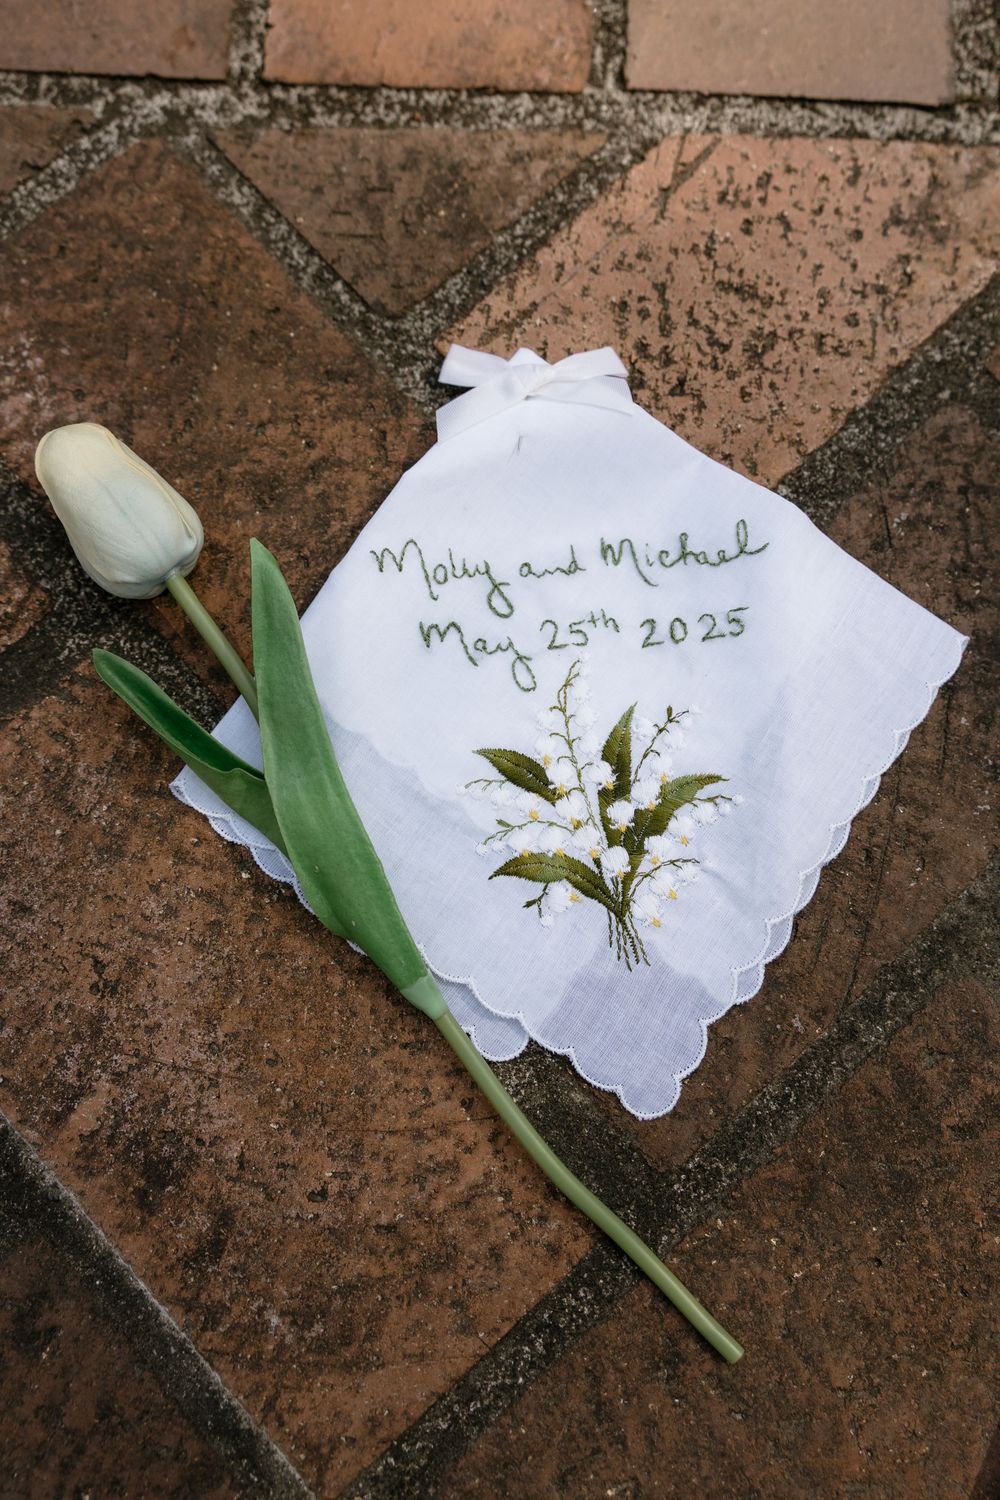 Molly and Michael
May 25th 2025